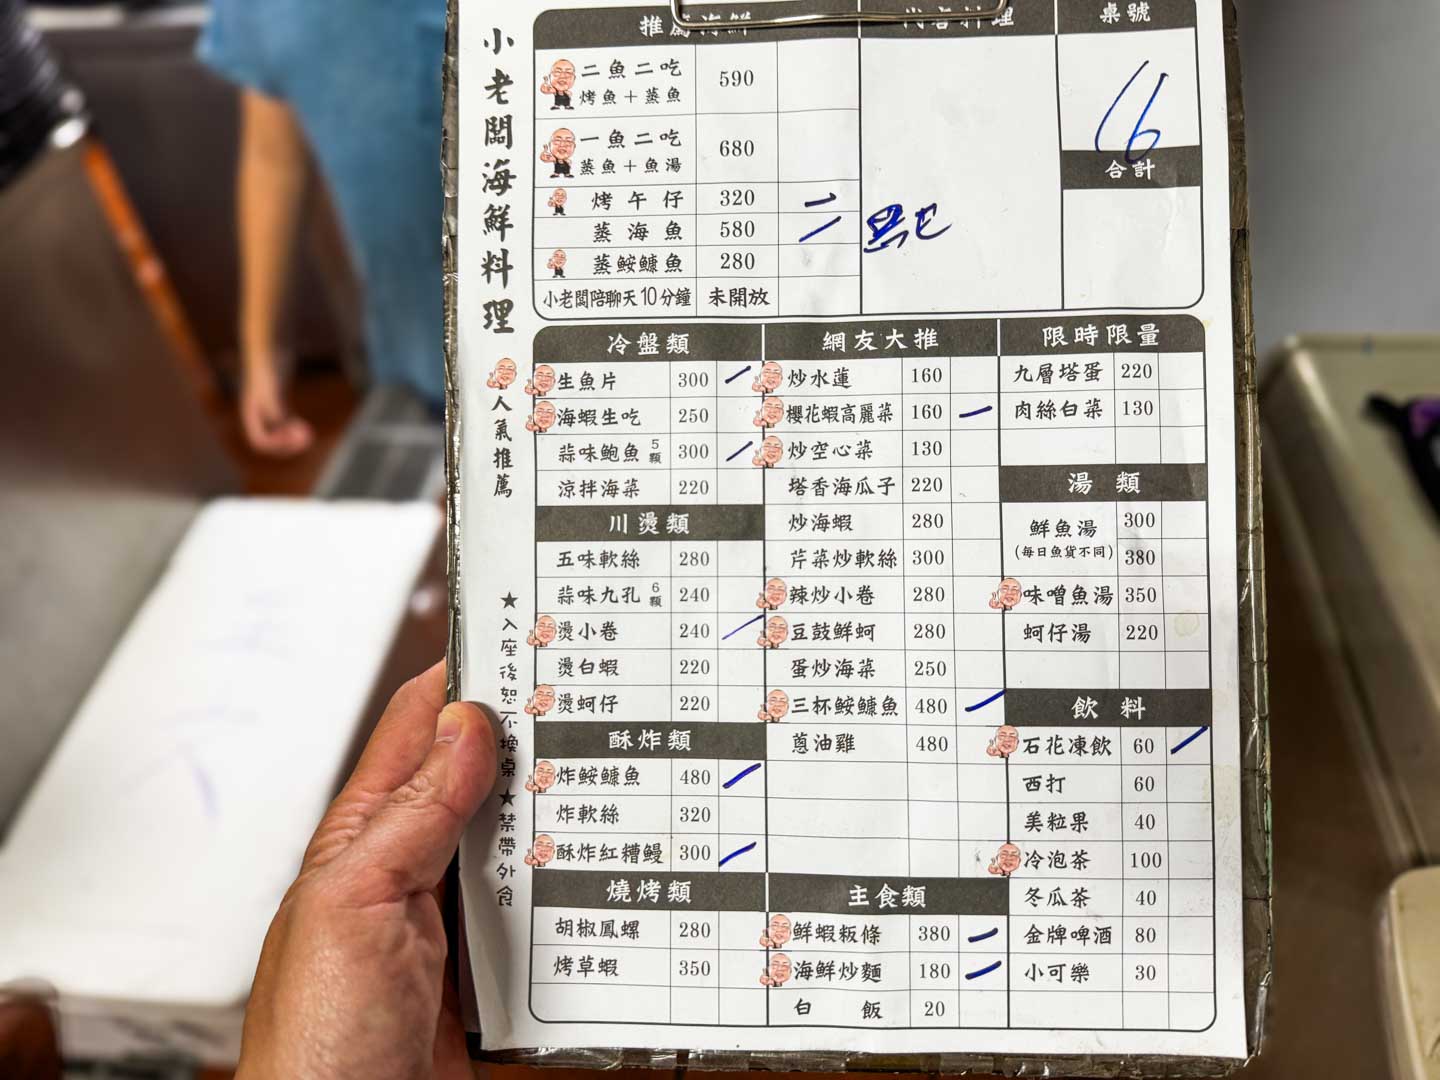 小老闆海鮮料理
人氣推薦
★入座後恕不換桌★禁帶外食
推薦海鮮
二魚二吃 590
烤魚＋蒸魚
一魚二吃 680
蒸魚＋魚湯
烤午仔 320
蒸海魚 580
蒸鮟鱇魚 280
小老闆陪聊天10分鐘 未開放
代客料理
桌號
16
合計
冷盤類
生魚片 300
海蝦生吃 250
蒜味鮑魚 5顆 300
涼拌海菜 220
川燙類
五味軟絲 280
蒜味九孔 6顆 240
燙小卷 240
燙白蝦 220
燙蚵仔 220
酥炸類
炸鮟鱇魚 480
炸軟絲 320
酥炸紅糟鰻 300
燒烤類
胡椒鳳螺 280
烤草蝦 350
網友大推
炒水蓮 160
櫻花蝦高麗菜 160
炒空心菜 130
塔香海瓜子 220
炒海蝦 280
芹菜炒軟絲 300
辣炒小卷 280
豆鼓鮮蚵 280
蛋炒海菜 250
三杯鮟鱇魚 480
蔥油雞 480
主食類
鮮蝦粄條 380
海鮮炒麵 180
白飯 20
限時限量
九層塔蛋 220
肉絲白菜 130
湯類
鮮魚湯 300
（每日魚貨不同） 380
味噌魚湯 350
蚵仔湯 220
飲料
石花凍飲 60
西打 60
美粒果 40
冷泡茶 100
冬瓜茶 40
金牌啤酒 80
小可樂 30